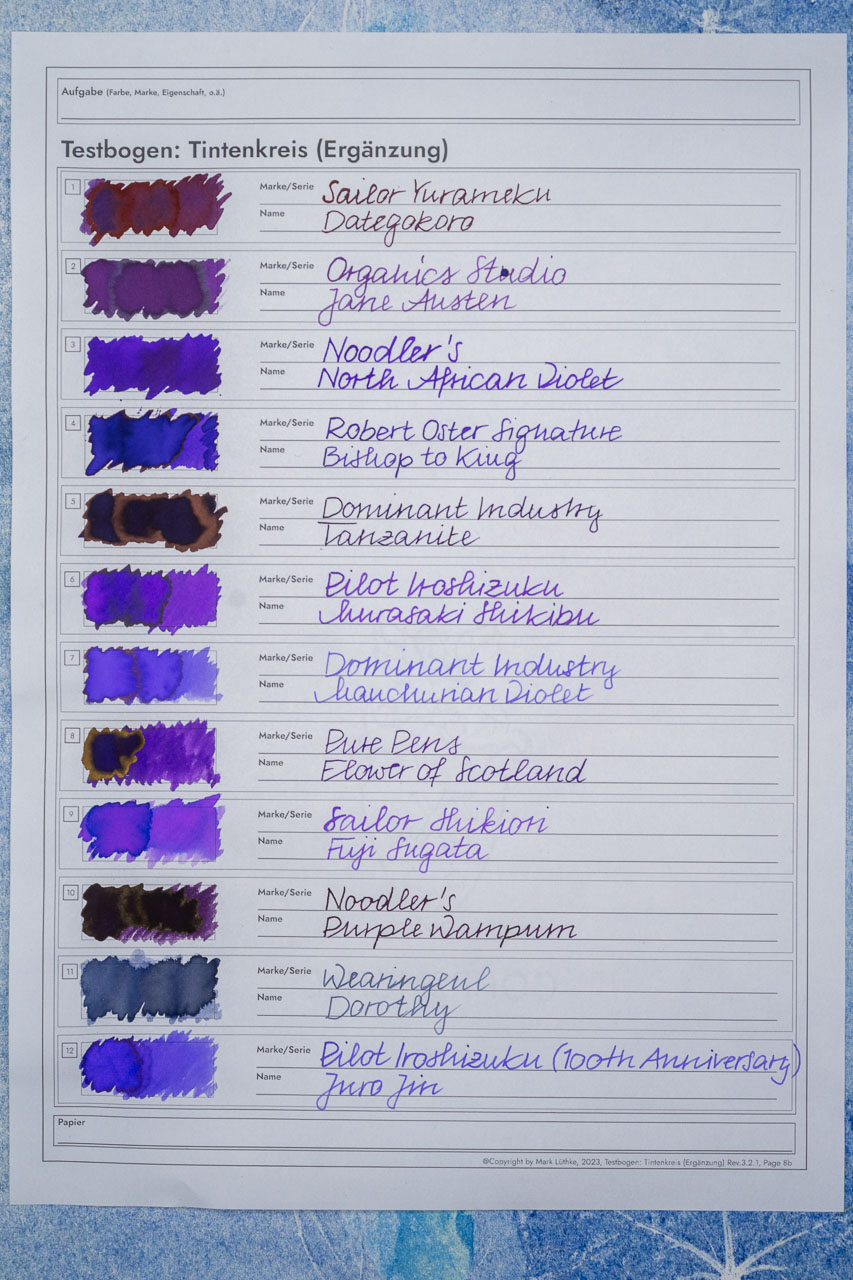 Aufgabe (Farbe, Marke, Eigenschaft, o.ä.)
Testbogen: Tintenkreis (Ergänzung)
1 Marke/Serie Sailor Yurameku
Name Dategokoro
2 Marke/Serie Organics Studio
Name Jane Austen
3 Marke/Serie Noodler's
Name North African Violet
4 Marke/Serie Robert Oster Signature
Name Bishop to King
5 Marke/Serie Dominant Industry
Name Tanzanite
6 Marke/Serie Pilot Iroshizuku
Name Murasaki Shikibu
7 Marke/Serie Dominant Industry
Name Manchurian Violet
8 Marke/Serie Pure Pens
Name Flower of Scotland
9 Marke/Serie Sailor Shikiori
Name Fuji Sugata
10 Marke/Serie Noodler's
Name Purple Wampum
11 Marke/Serie Wearingeul
Name Dorothy
12 Marke/Serie Pilot Iroshizuku (100th Anniversary)
Name Juro Jin
Papier
©Copyright by Mark Lüthke, 2023, Testbogen: Tintenkreis (Ergänzung) Rev.3.2.1, Page 8b